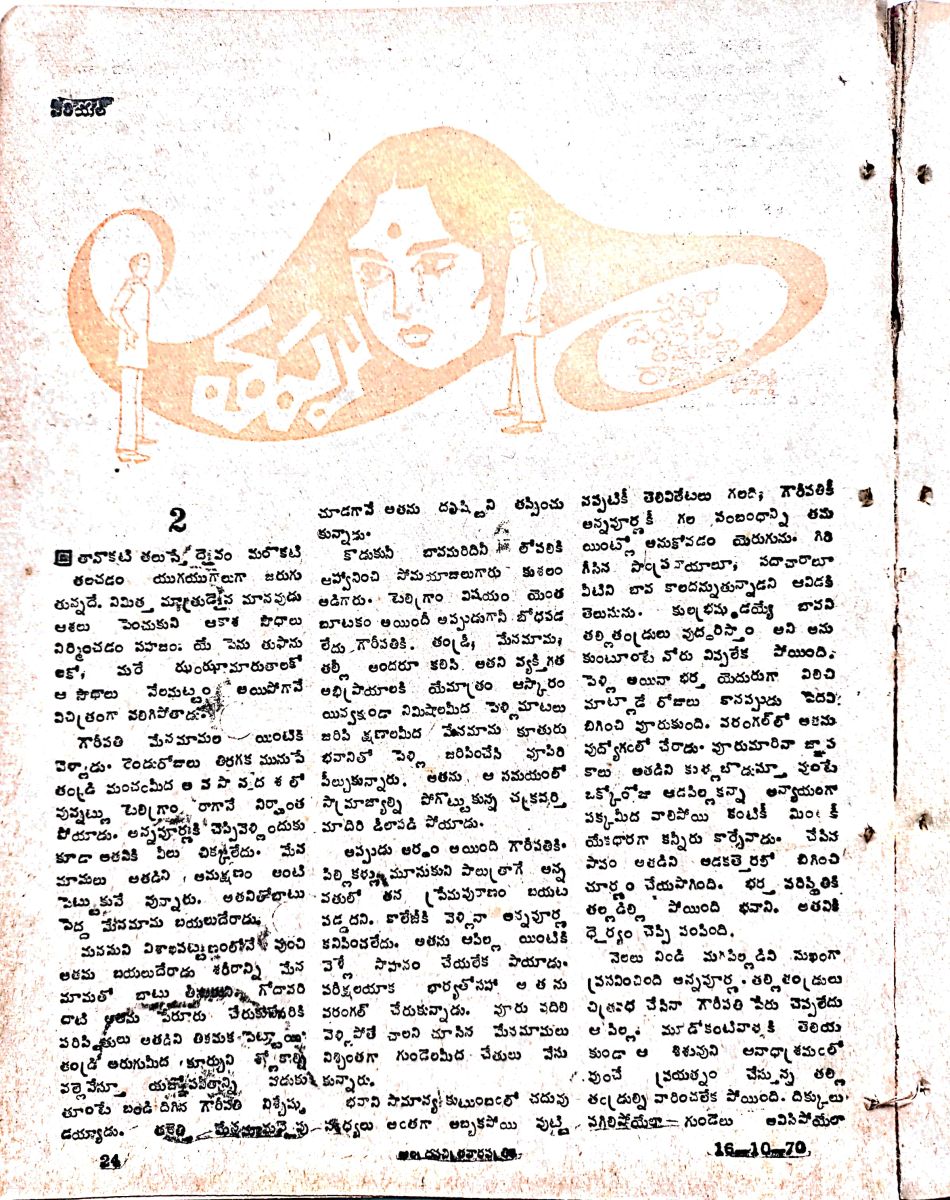 సీరియల్
2
తానొకటి తలుస్తే దైవం మరొకటి
తలవడం యుగయుగాలుగా జరుగు
తున్నదే. నిమిత్త మాత్రుడైన మానవుడు
ఆశలు పెంచుకుని ఆకాశ సౌధాలు
నిర్మించడం సహజం: యే పెను తుఫాను
లకో, మరే ఝంఝామారుతాలకో
ఆ సౌధాలు నేలమట్టం అయిపోగానే
విచిత్రంగా నలిగిపోతాడు.
గౌరీపతి మేనమామల యింటికి
వెళ్ళాడు. రెండురోజులు తిరగక మునుపే
తండ్రి మంచంమీద అ వ సా న్న ద శ లో
వున్నట్లు టెలిగ్రాం రాగానే నిర్ఘాంత
పోయాడు. అన్నపూర్ణకి చెప్పివెళ్ళేందుకు
కూడా అతనికి వీలు చిక్కలేదు. మేన
మామలు అతడిని అనుక్షణం అంటి
పెట్టుకునే వున్నారు. అతనితోబాటు
పెద్ద మేనమామ బయలుదేరాడు.
మనసుని విశాఖపట్టణంలోనే వుంచి
అతను బయలుదేరాడు శరీరాన్ని మేన
మామతో బాటు తీసుకుని. గోదావరి
దాటి అతను పేరూరు చేరుకునేసరికి
పరిస్థితులు అతడిని తికమక పెట్టాయి.
తండ్రి అరుగుమీద కూర్చుని శ్లోకాల్ని
వల్లెవేస్తూ యజ్ఞోపవీతాన్ని వడుకు
తూంటే బండి దిగిన గౌరీపతి విశ్చేష్టు
డయ్యాడు. తండ్రి మేనమామవైపు
చూడగానే అతను దృష్టిని తప్పించు
కున్నాడు.
కొడుకునీ బావమరిదినీ లోపలికి
ఆహ్వానించి సోమయాజులుగారు కుశలం
అడిగారు. టెలిగ్రాం విషయం యెంత
బూటకం అయిందీ అప్పుడుగానీ బోధపడ
లేదు గౌరీపతికి. తండ్రీ, మేనమామ,
తల్లీ అందరూ కలిసి అతని వ్యక్తిగత
అభిప్రాయాలకి యేమాత్రం ఆస్కారం
యివ్వకుండా నిమిషాలమీద పెళ్ళిమాటలు
జరిపి క్షణాలమీద మేనమామ కూతురు
భవానితో పెళ్ళి జరిపించేసి వూపిరి
పీల్చుకున్నారు. అతను ఆ సమయంలో
సామ్రాజ్యాల్ని పోగొట్టుకున్న చక్రవర్తి
మాదిరి డీలాపడి పోయాడు.
అప్పుడు అర్థం అయింది గౌరీపతికి.
పిల్లికళ్ళు మూసుకుని పాలుత్రాగే అన్న
వతులో తన ప్రేమపురాణం బయట
పడ్డదని. కాలేజీకి వెళ్లినా అన్నపూర్ణ
కనిపించలేదు. అతను ఆపిల్ల యింటికి
వెళ్లే సాహసం చేయలేక పోయాడు.
పరీక్షలయాక భార్యతోసహా అ త ను
వరంగల్ చేరుకున్నాడు. వూరు వదిలి
వెళ్ళిపోతే చాలని చూసిన మేనమామలు
నిశ్చింతగా గుండెలమీద చేతులు వేసు
కున్నారు.
భవాని సామాన్యకుటుంబంలో చదువు
సంధ్యలు అంతగా అబ్బకపోయి పుట్టి
నప్పటికీ తెలివితేటలు గలది; గౌరీపతికీ
అన్నపూర్ణకీ గల సంబంధాన్ని తమ
యింట్లో అనుకోవడం యెరుగును. గిరి
గీసిన సాంప్రదాయాలూ, సదాచారాలూ
వీటిని బావ కాలదన్నుతున్నాడని ఆవిడకి
తెలుసును. కులభ్రష్టుడయ్యే బావని
తల్లితండ్రులు వుద్ధరిస్తాం అని అను
కుంటూంటే నోరు విప్పలేక పోయింది.
పెళ్లి అయినా భర్త యెదురుగా నిలిచి
మాట్లాడే రోజులు కానప్పుడు పెదవి
బిగించి వూరుకుంది. వరంగల్‌లో అతను
వుద్యోగంలో చేరాడు. వూరుమారినా జ్ఞాప
కాలు అతడిని కుళ్లబొడుస్తూ వుంటే
ఒక్కోరోజు ఆడపిల్లకన్నా అన్యాయంగా
పక్కమీద వాలిపోయి కంటికీ మింటికీ
యేకధారగా కన్నీరు కార్చేవాడు. చేసిన
పాపం అతడిని అడకత్తెరలో బిగించి
చూర్ణం చేయసాగింది. భర్త పరిస్థితికి
తల్లడిల్లి పోయింది భవాని. అతనికి
ధైర్యం చెప్పి పంపింది.
నెలలు నిండి మగపిల్లడిని సుఖంగా
ప్రసవించింది అన్నపూర్ణ. తల్లితండ్రులు
చిత్రవధ చేసినా గౌరీపతి పేరు చెప్పలేదు
ఆ పిల్ల. మూడోకంటివాళ్ళకి తెలియ
కుండా ఆ శిశువుని అనాధాశ్రమంలో
వుంచే ప్రయత్నం చేస్తున్న తల్లి
తండ్రుల్ని వారించలేక పోయింది. దిక్కులు
పగిలిపోయేలా గుండెలు అవిసిపోయేలా
24
ఆంధ్ర సచిత్రవారపత్రిక
16-10-70